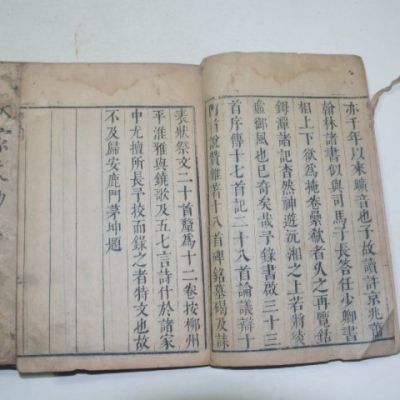 亦千年以來曠音也子故讀許京兆蕭
翰林諸書似與司馬子長答任少卿書
相上下欲爲掩卷纍欷者久之再覽鈷
鉧潭諸記杳然神遊沅湘之上若將凌
虛御風也已奇矣哉予錄書啟三十三
首序傳十七首記二十八首論議辯十
四首說贊雜著十八首碑銘墓碣及誄
表狀祭文二十首釐爲十二卷按柳州
平淮雅與鐃歌及五七言詩什於諸家
中尤擅所長予挍而錄之者特文也故
不及歸安鹿門茅坤題